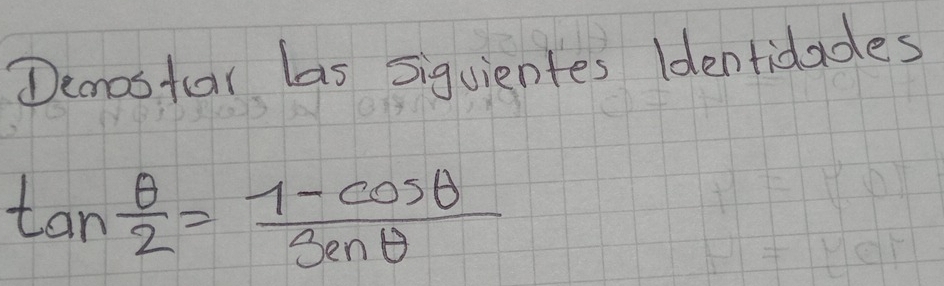 Demostrar las siguientes Identidades
tan θ/2 = 1 - cosθ / Senθ